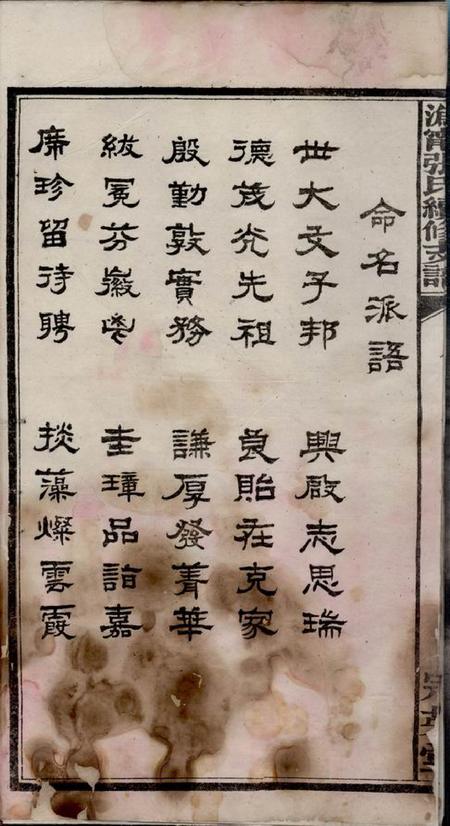 命名派語
世大文子邦 興啟志思瑞
德茂光先祖 良貽在克家
殷勤敦實務 謙厚發菁華
紱冕芬徽遠 圭璋品詣嘉
席珍留待聘 掞藻燦雲霞
張氏續修支譜